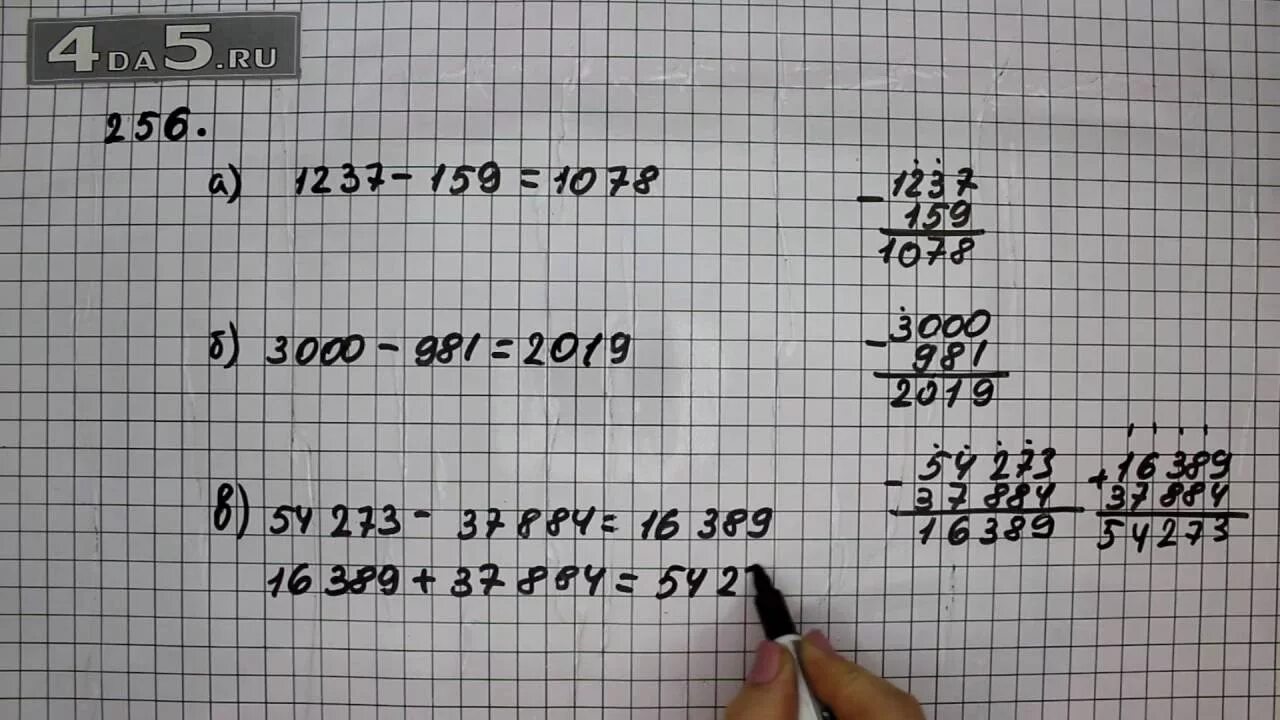 4DA5.RU
256.
а) 1237 - 159 = 1078
1237
- 159
1078
б) 3000 - 981 = 2019
3000
- 981
2019
в) 54 273 - 37 884 = 16 389
16 389 + 37 884 = 54 27
54 273
- 37 884
16 389
+ 16 389
37 884
54273